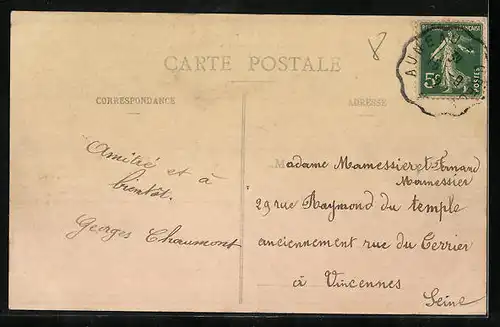 8
CARTE POSTALE
CORRESPONDANCE
ADRESSE
Amitié et à
bientôt.
Georges Chaumont
Madame Mamessier et Fernand
Mamessier
29 rue Raymond du temple
anciennement rue du Terrier
à Vincennes
Seine
5c
POSTES